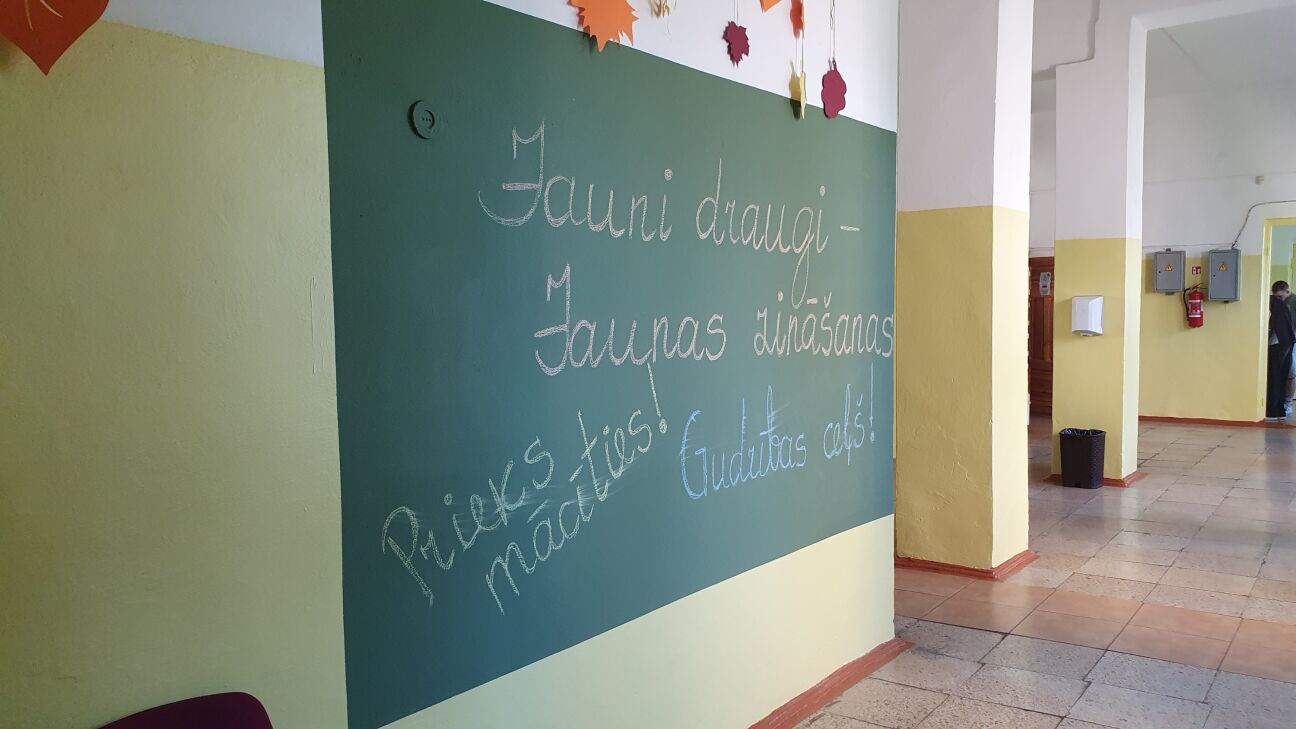 Jauni draugi –
Jauņas zināšanas
Prieks
mācīties!
Gudrības ceļš!